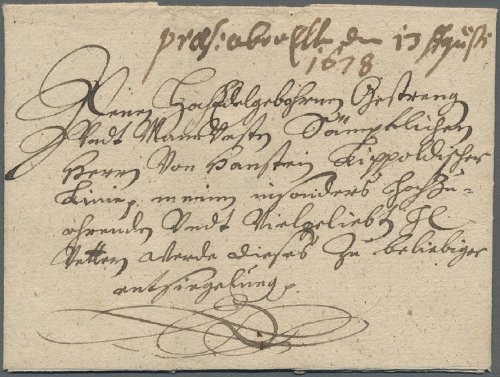 præs: aber Elle den 13 Augusti
1678
Denen HochEdelgebohrnen Gestreng
Undt Mannvesten Sämptlichen
Herrn Von Hanstein Lippoldischer
Linie p. meinen insonders Hochzu-
ehrenden Undt Vielgeliebten H.
Vettern werde dieses Zu beliebiger
entsiegelung p.